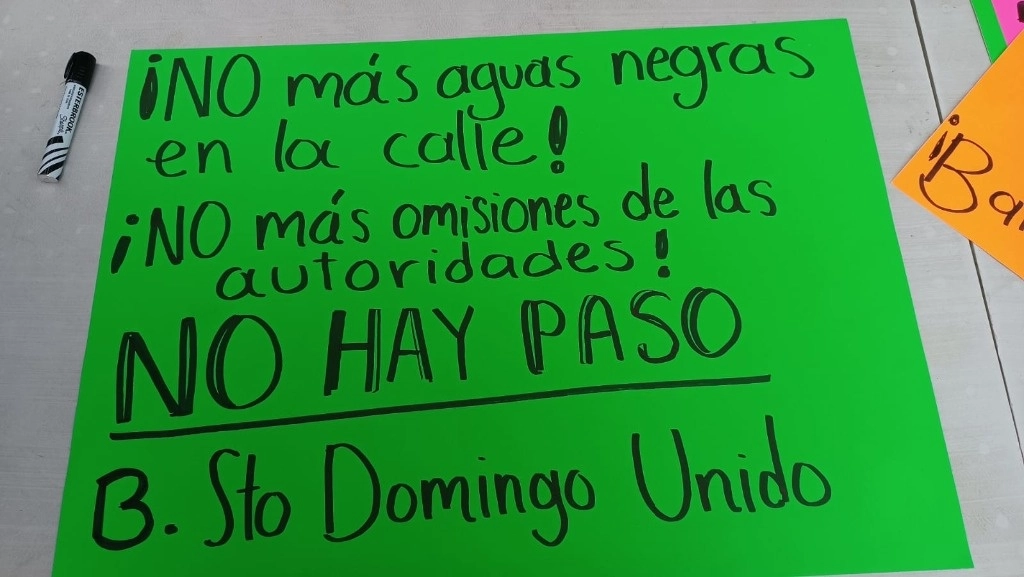 ¡NO más aguas negras
en la calle!
¡NO más omisiones de las
autoridades!
NO HAY PASO
B. Sto Domingo Unido
ESTERBROOK
¡Ba